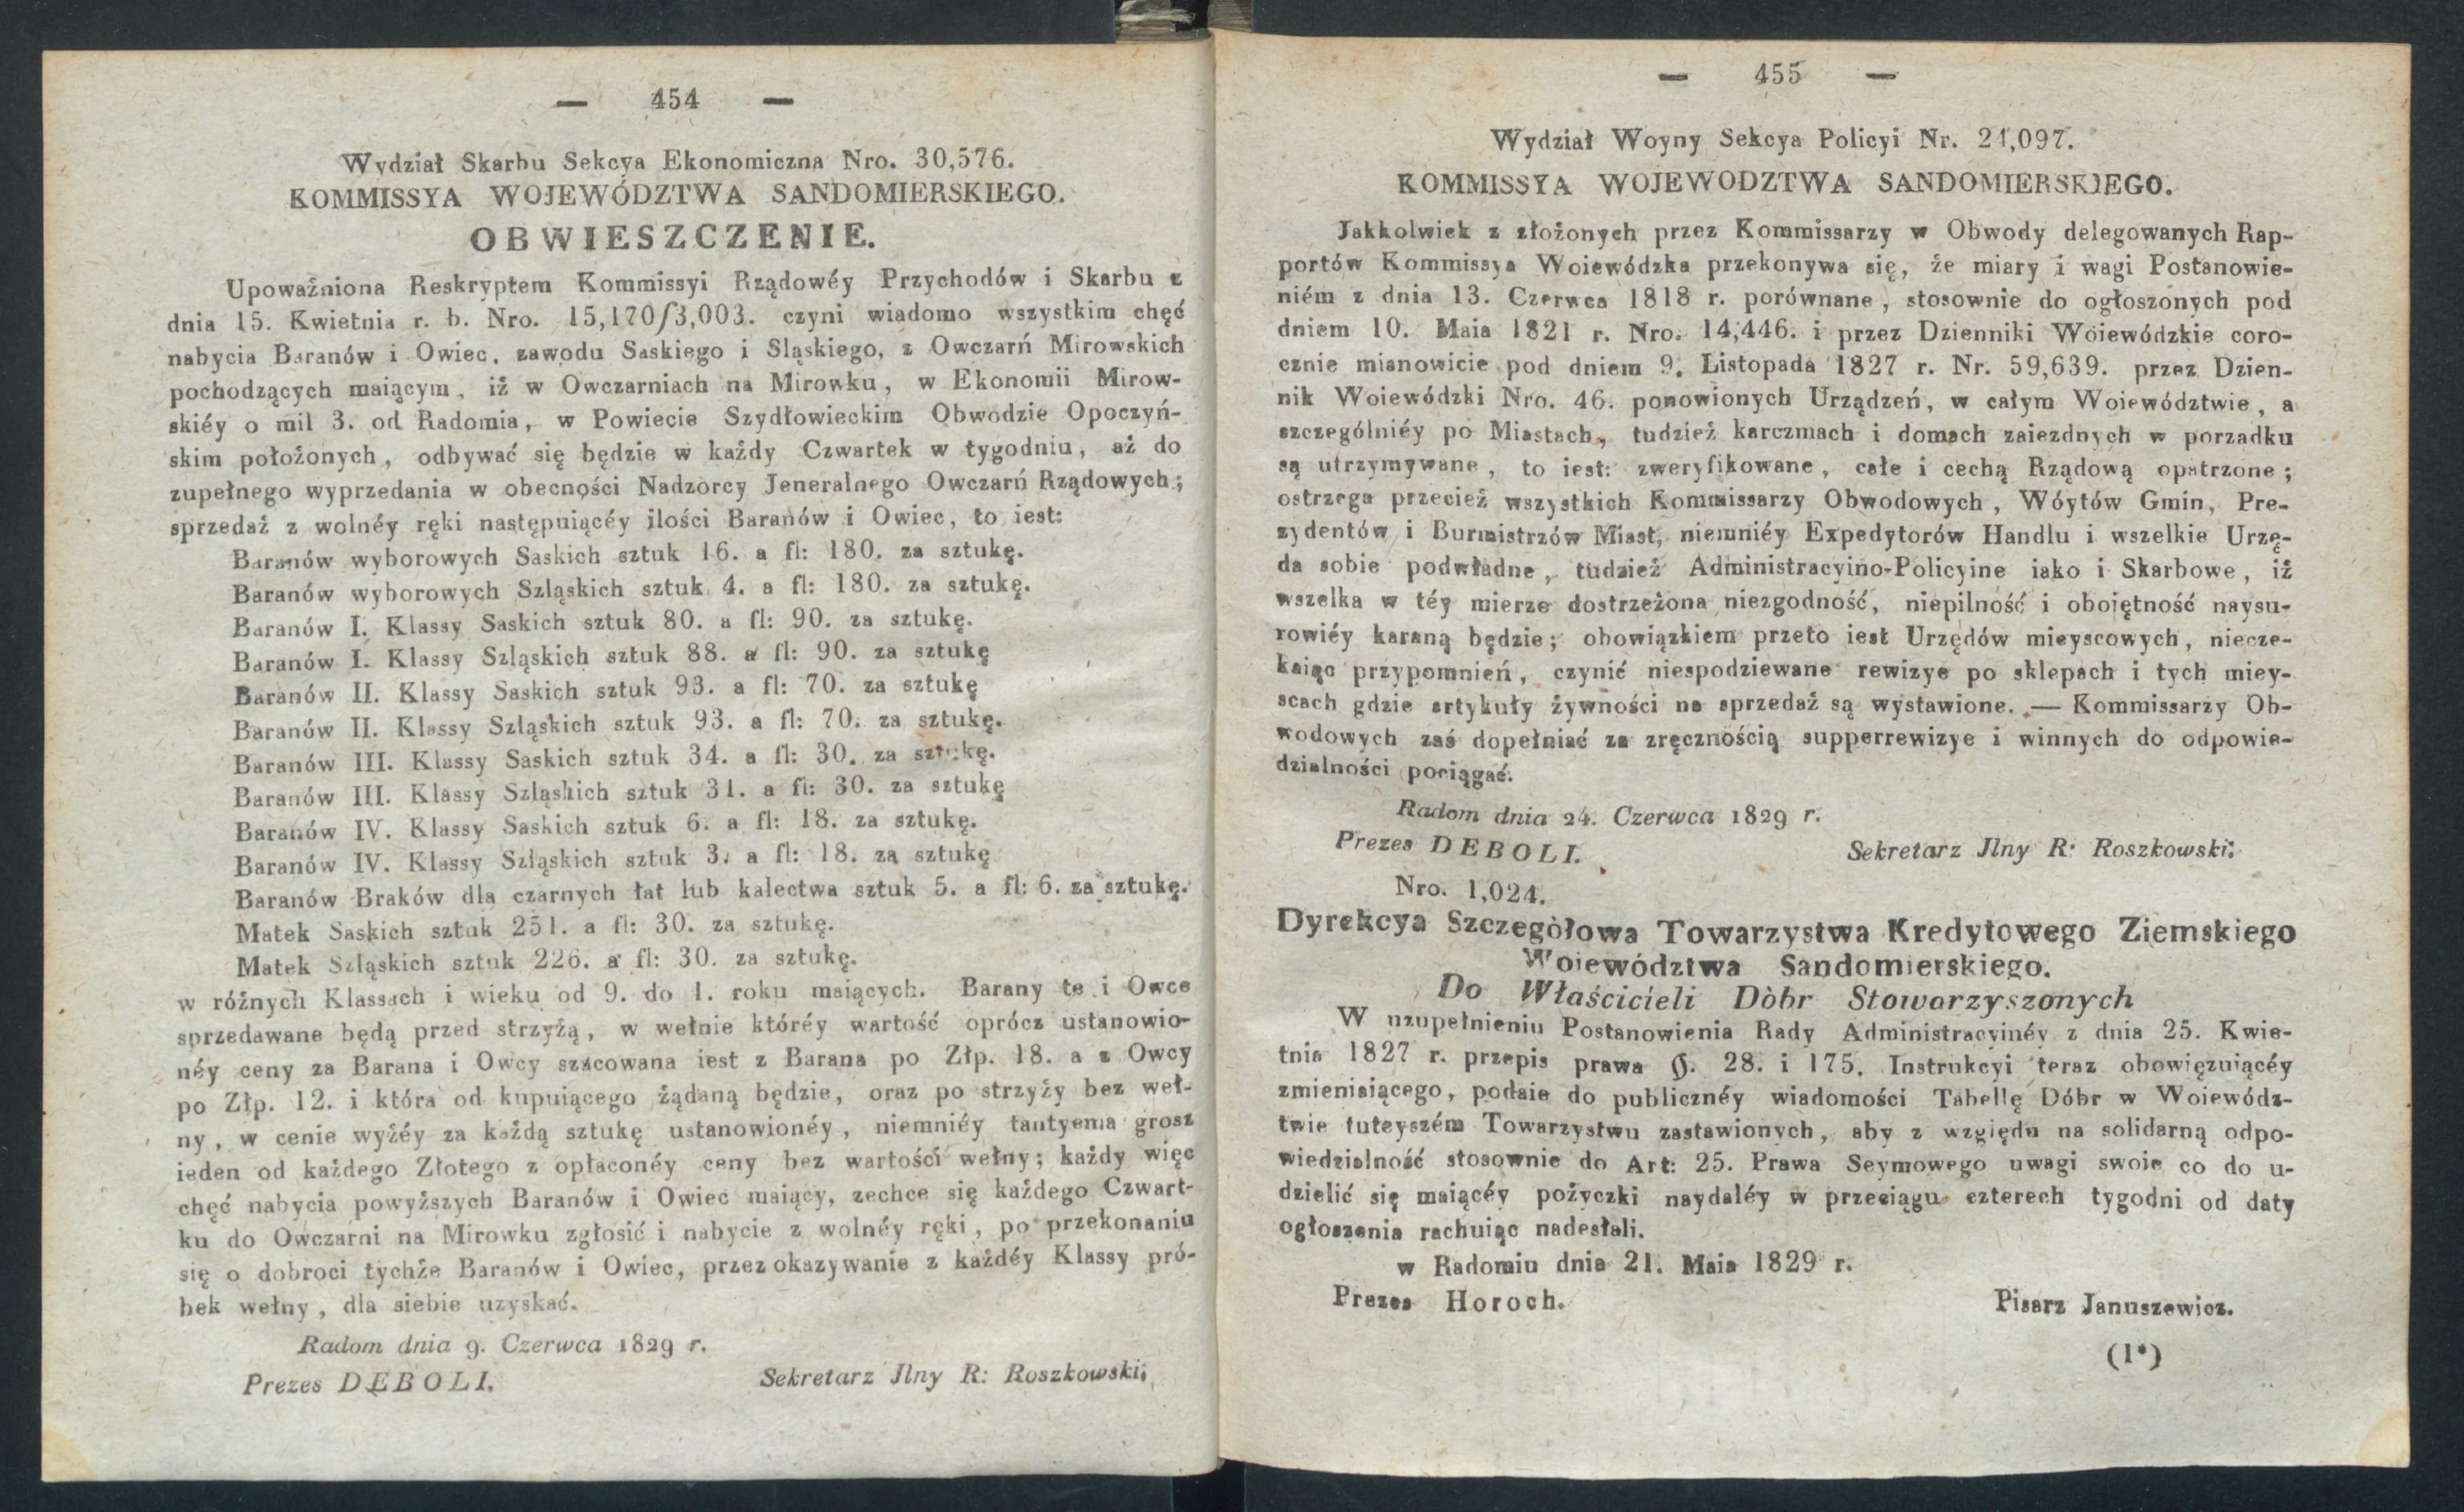 — 454 —
Wydział Skarbu Sekcya Ekonomiczna Nro. 30,576.
KOMMISSYA WOJEWÓDZTWA SANDOMIERSKIEGO.
OBWIESZCZENIE.
Upoważniona Reskryptem Kommissyi Rządowéy Przychodów i Skarbu z
dnia 15. Kwietnia r. b. Nro. 15,170/3,003. czyni wiadomo wszystkim chęć
nabycia Baranów i Owiec, zawodu Saskiego i Sląskiego, z Owczarń Mirowskich
pochodzących maiącym, iż w Owczarniach na Mirowku, w Ekonomii Mirow-
skiéy o mil 3. od Radomia, w Powiecie Szydłowieckim Obwodzie Opoczyń-
skim położonych, odbywać się będzie w każdy Czwartek w tygodniu, aż do
zupełnego wyprzedania w obecności Nadzorcy Jeneralnego Owczarń Rządowych;
sprzedaż z wolnéy ręki następuiącéy ilości Baranów i Owiec, to iest:
Baranów wyborowych Saskich sztuk 16. a fl: 180. za sztukę.
Baranów wyborowych Szląskich sztuk 4. a fl: 180. za sztukę.
Baranów I. Klassy Saskich sztuk 80. a fl: 90. za sztukę.
Baranów I. Klassy Szląskich sztuk 88. a fl: 90. za sztukę
Baranów II. Klassy Saskich sztuk 93. a fl: 70. za sztukę
Baranów II. Klassy Szląskich sztuk 93. a fl: 70. za sztukę.
Baranów III. Klassy Saskich sztuk 34. a fl: 30. za sztukę.
Baranów III. Klassy Szląskich sztuk 31. a fl: 30. za sztukę
Baranów IV. Klassy Saskich sztuk 6. a fl: 18. za sztukę.
Baranów IV. Klassy Szląskich sztuk 3. a fl: 18. za sztukę
Baranów Braków dla czarnych łat lub kalectwa sztuk 5. a fl: 6. za sztukę.
Matek Saskich sztuk 251. a fl: 30. za sztukę.
Matek Szląskich sztuk 226. a fl: 30. za sztukę.
w różnych Klassach i wieku od 9. do 1. roku maiących. Barany te i Owce
sprzedawane będą przed strzyżą, w wełnie któréy wartość oprócz ustanowio-
néy ceny za Barana i Owcy szacowana iest z Barana po Złp. 18. a z Owcy
po Złp. 12. i która od kupuiącego żądaną będzie, oraz po strzyży bez weł-
ny, w cenie wyżéy za każdą sztukę ustanowionéy, niemniéy tantyema grosz
ieden od każdego Złotego z opłaconéy ceny bez wartości wełny; każdy więc
chęć nabycia powyższych Baranów i Owiec maiący, zechce się każdego Czwart-
ku do Owczarni na Mirowku zgłosić i nabycie z wolnéy ręki, po przekonaniu
się o dobroci tychże Baranów i Owiec, przez okazywanie z każdéy Klassy pró-
bek wełny, dla siebie uzyskać.
Radom dnia 9. Czerwca 1829 r.
Prezes DEBOLI. Sekretarz Jlny R: Roszkowski;
— 455 —
Wydział Woyny Sekcya Policyi Nr. 21,097.
KOMMISSYA WOJEWODZTWA SANDOMIERSKIEGO.
Jakkolwiek z złożonych przez Kommissarzy w Obwody delegowanych Rap-
portów Kommissya Woiewódzka przekonywa się, że miary i wagi Postanowie-
niém z dnia 13. Czerwca 1818 r. porównane, stosownie do ogłoszonych pod
dniem 10. Maia 1821 r. Nro. 14,446. i przez Dzienniki Woiewódzkie coro-
cznie mianowicie pod dniem 9. Listopada 1827 r. Nr. 59,639. przez Dzien-
nik Woiewódzki Nro. 46. ponowionych Urządzeń, w całym Woiewództwie, a
szczególniéy po Miastach, tudzież karczmach i domach zaiezdnych w porzadku
są utrzymywane, to iest: zweryfikowane, całe i cechą Rządową opatrzone;
ostrzega przecież wszystkich Kommissarzy Obwodowych, Wóytów Gmin, Pre-
zydentów i Burmistrzów Miast, niemniéy Expedytorów Handlu i wszelkie Urzę-
da sobie podwładne, tudzież Administracyino-Policyine iako i Skarbowe, iż
wszelka w téy mierze dostrzeżona niezgodność, niepilność i oboiętność naysu-
rowiéy karaną będzie; obowiązkiem przeto iest Urzędów mieyscowych, niecze-
kaiąc przypomnień, czynić niespodziewane rewizye po sklepach i tych miey-
scach gdzie artykuły żywności na sprzedaż są wystawione. — Kommissarzy Ob-
wodowych zaś dopełniać za zręcznością supperrewizye i winnych do odpowie-
dzialności pociągać.
Radom dnia 24. Czerwca 1829 r.
Prezes DEBOLI. Sekretarz Jlny R: Roszkowski:
Nro. 1,024.
Dyrekcya Szczegòłowa Towarzystwa Kredytowego Ziemskiego
Woiewództwa Sandomierskiego.
Do Właścicieli Dòbr Stowarzyszonych
W uzupełnieniu Postanowienia Rady Administracyinéy z dnia 25. Kwie-
tnia 1827 r. przepis prawa §. 28. i 175. Instrukcyi teraz obowięzuiącéy
zmieniaiącego, podaie do publicznéy wiadomości Tabellę Dóbr w Woiewódz-
twie tuteyszém Towarzystwu zastawionych, aby z względu na solidarną odpo-
wiedzialność stosownie do Art: 25. Prawa Seymowego uwagi swoie co do u-
dzielić się maiącéy pożyczki naydaléy w przeciągu czterech tygodni od daty
ogłoszenia rachuiąc nadesłali.
w Radomiu dnia 21. Maia 1829 r.
Prezes Horoch. Pisarz Januszewicz.
(1*)